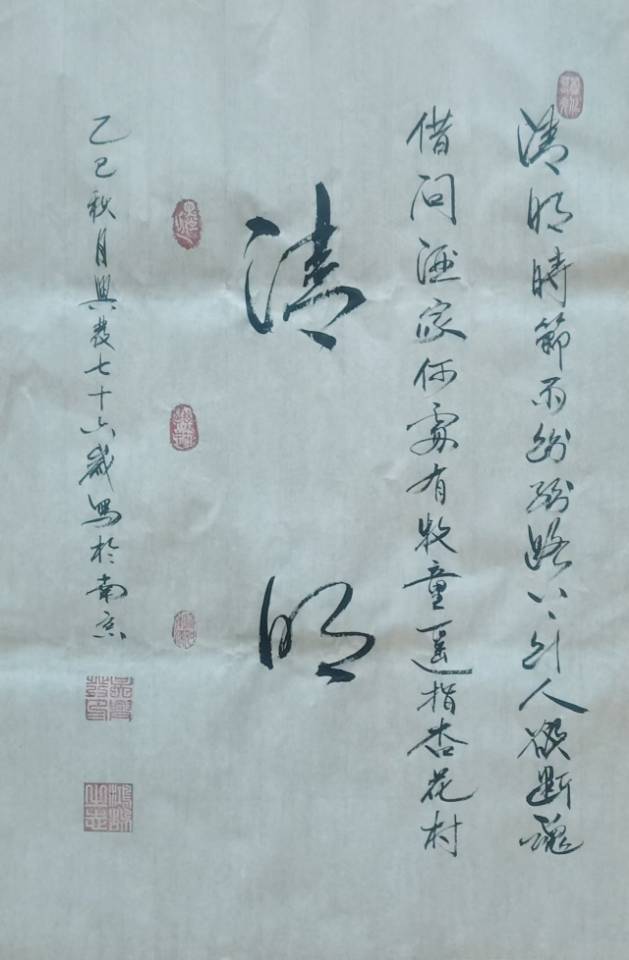 清明時節雨紛紛路上行人欲斷魂
借問酒家何處有牧童遥指杏花村
清明
乙巳秋月興發七十六歲寫於南京
鴻鵠之志